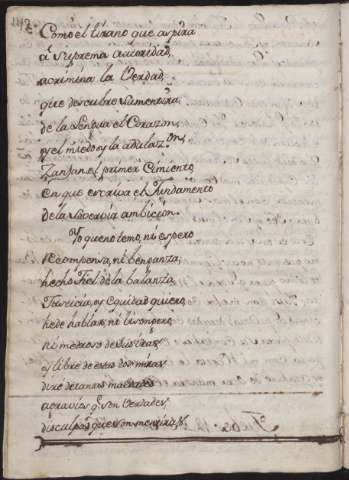 Como el tirano que aspira
a suprema autoridad,
acrimina la Verdad,
que descubre su mentira,
de la Lengua el Corazon,
y el miedo, y la adulaz.on,
Zanjan el primer Cimiento,
en que estriva el fundamento
de la Sobervia ambicion.
Yo que no temo, ni espero
recompensa, ni benganza,
hecho fiel de la balanza,
Justicia, y equidad quiero,
he de hablar, ni lisongero,
ni medroso de sus iras,
y libre de estas dos miras
diré de tantas maldades
agravios q.e son Verdades,
disculpas, que son mentiras.